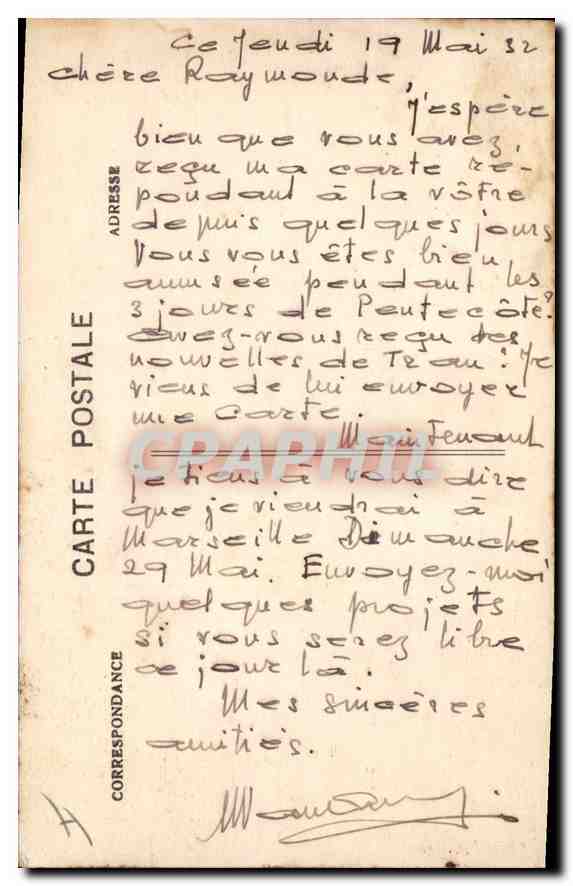 Ce Jeudi 19 Mai 32
Chère Raymonde,
J'espère
bien que vous avez
reçu ma carte ré-
pondant à la vôtre
depuis quelques jours
Vous vous êtes bien
amusée pendant les
3 jours de Pentecôte?
avez-vous reçu des
nouvelles de Tran? Je
viens de lui envoyer
une carte.
Maintenant
je tiens à vous dire
que je viendrai à
Marseille Dimanche
29 Mai. Envoyez-moi
quelques projets
si vous serez libre
ce jour là.
Mes sincères
amitiés.
CARTE POSTALE
ADRESSE
CORRESPONDANCE
CPAPHIL